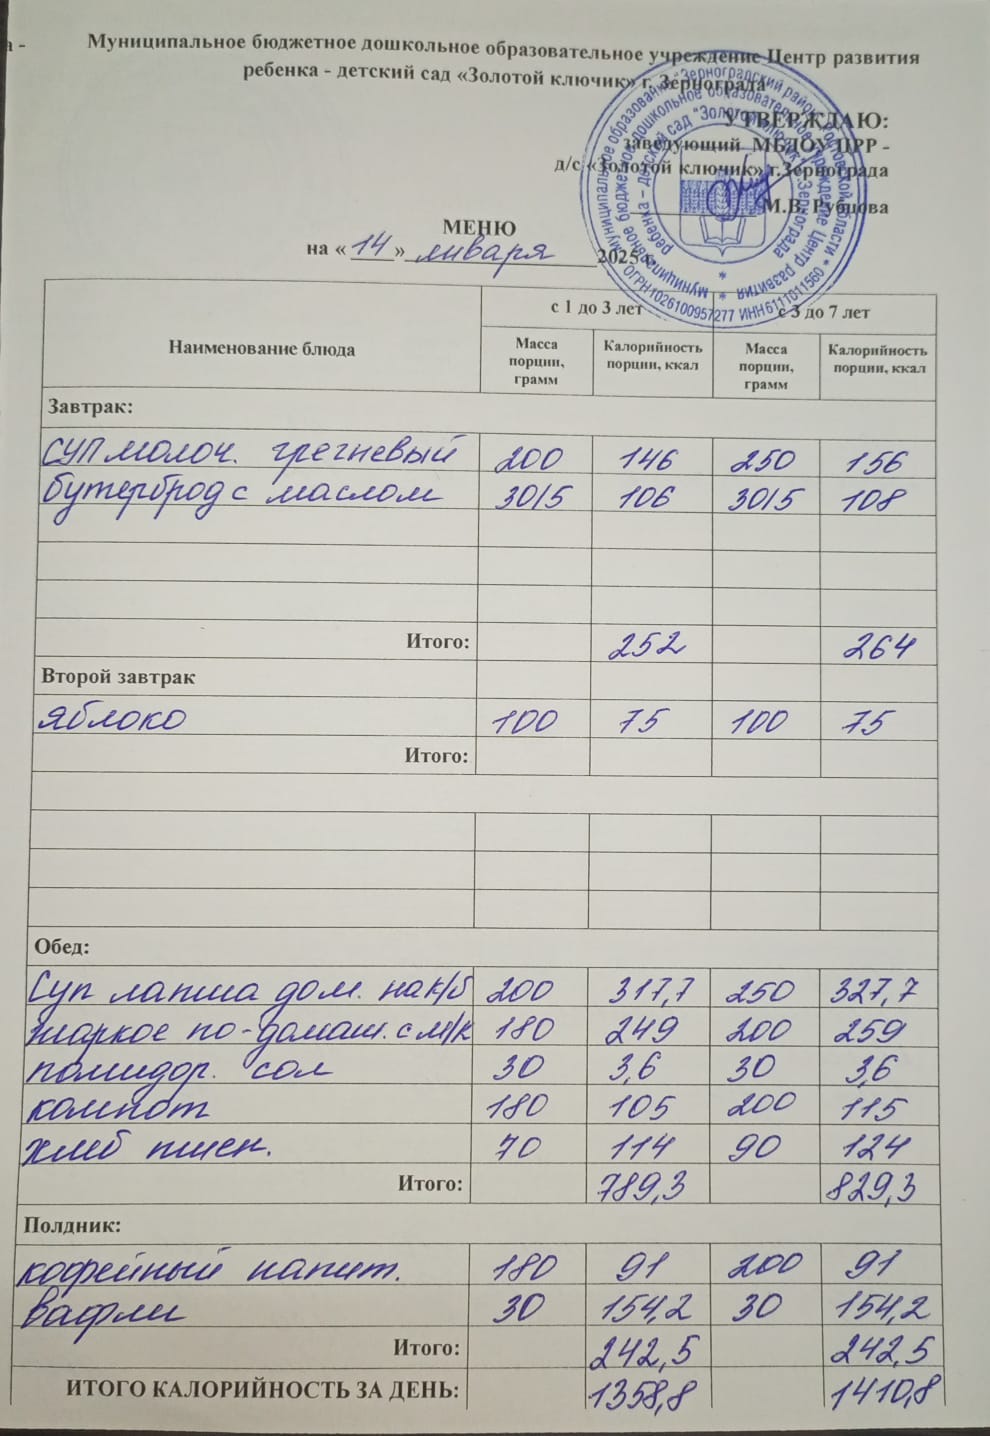 а -
Муниципальное бюджетное дошкольное образовательное учреждение Центр развития
ребенка - детский сад «Золотой ключик» г. Зернограда
УТВЕРЖДАЮ:
заведующий МБДОУ ЦРР -
д/с «Золотой ключик» г.Зернограда
М.В. Рубцова
МЕНЮ
на « 14 » января 2025 г.
Наименование блюда с 1 до 3 лет с 3 до 7 лет
Масса порции, грамм Калорийность порции, ккал Масса порции, грамм Калорийность порции, ккал
Завтрак:
суп молоч. гречневый 200 146 250 156
бутерброд с маслом 30/5 106 30/5 108
Итого: 252 264
Второй завтрак
яблоко 100 75 100 75
Итого:
Обед:
Суп лапша дом. на к/б 200 317,7 250 327,7
жаркое по-домаш. с м/к 180 249 200 259
помидор. сол 30 3,6 30 3,6
компот 180 105 200 115
хлеб пшен. 70 114 90 124
Итого: 789,3 829,3
Полдник:
кофейный напит. 180 91 200 91
вафли 30 154,2 30 154,2
Итого: 242,5 242,5
ИТОГО КАЛОРИЙНОСТЬ ЗА ДЕНЬ: 1358,8 1410,8
ОГРН 1026100957277 ИНН 6111011560